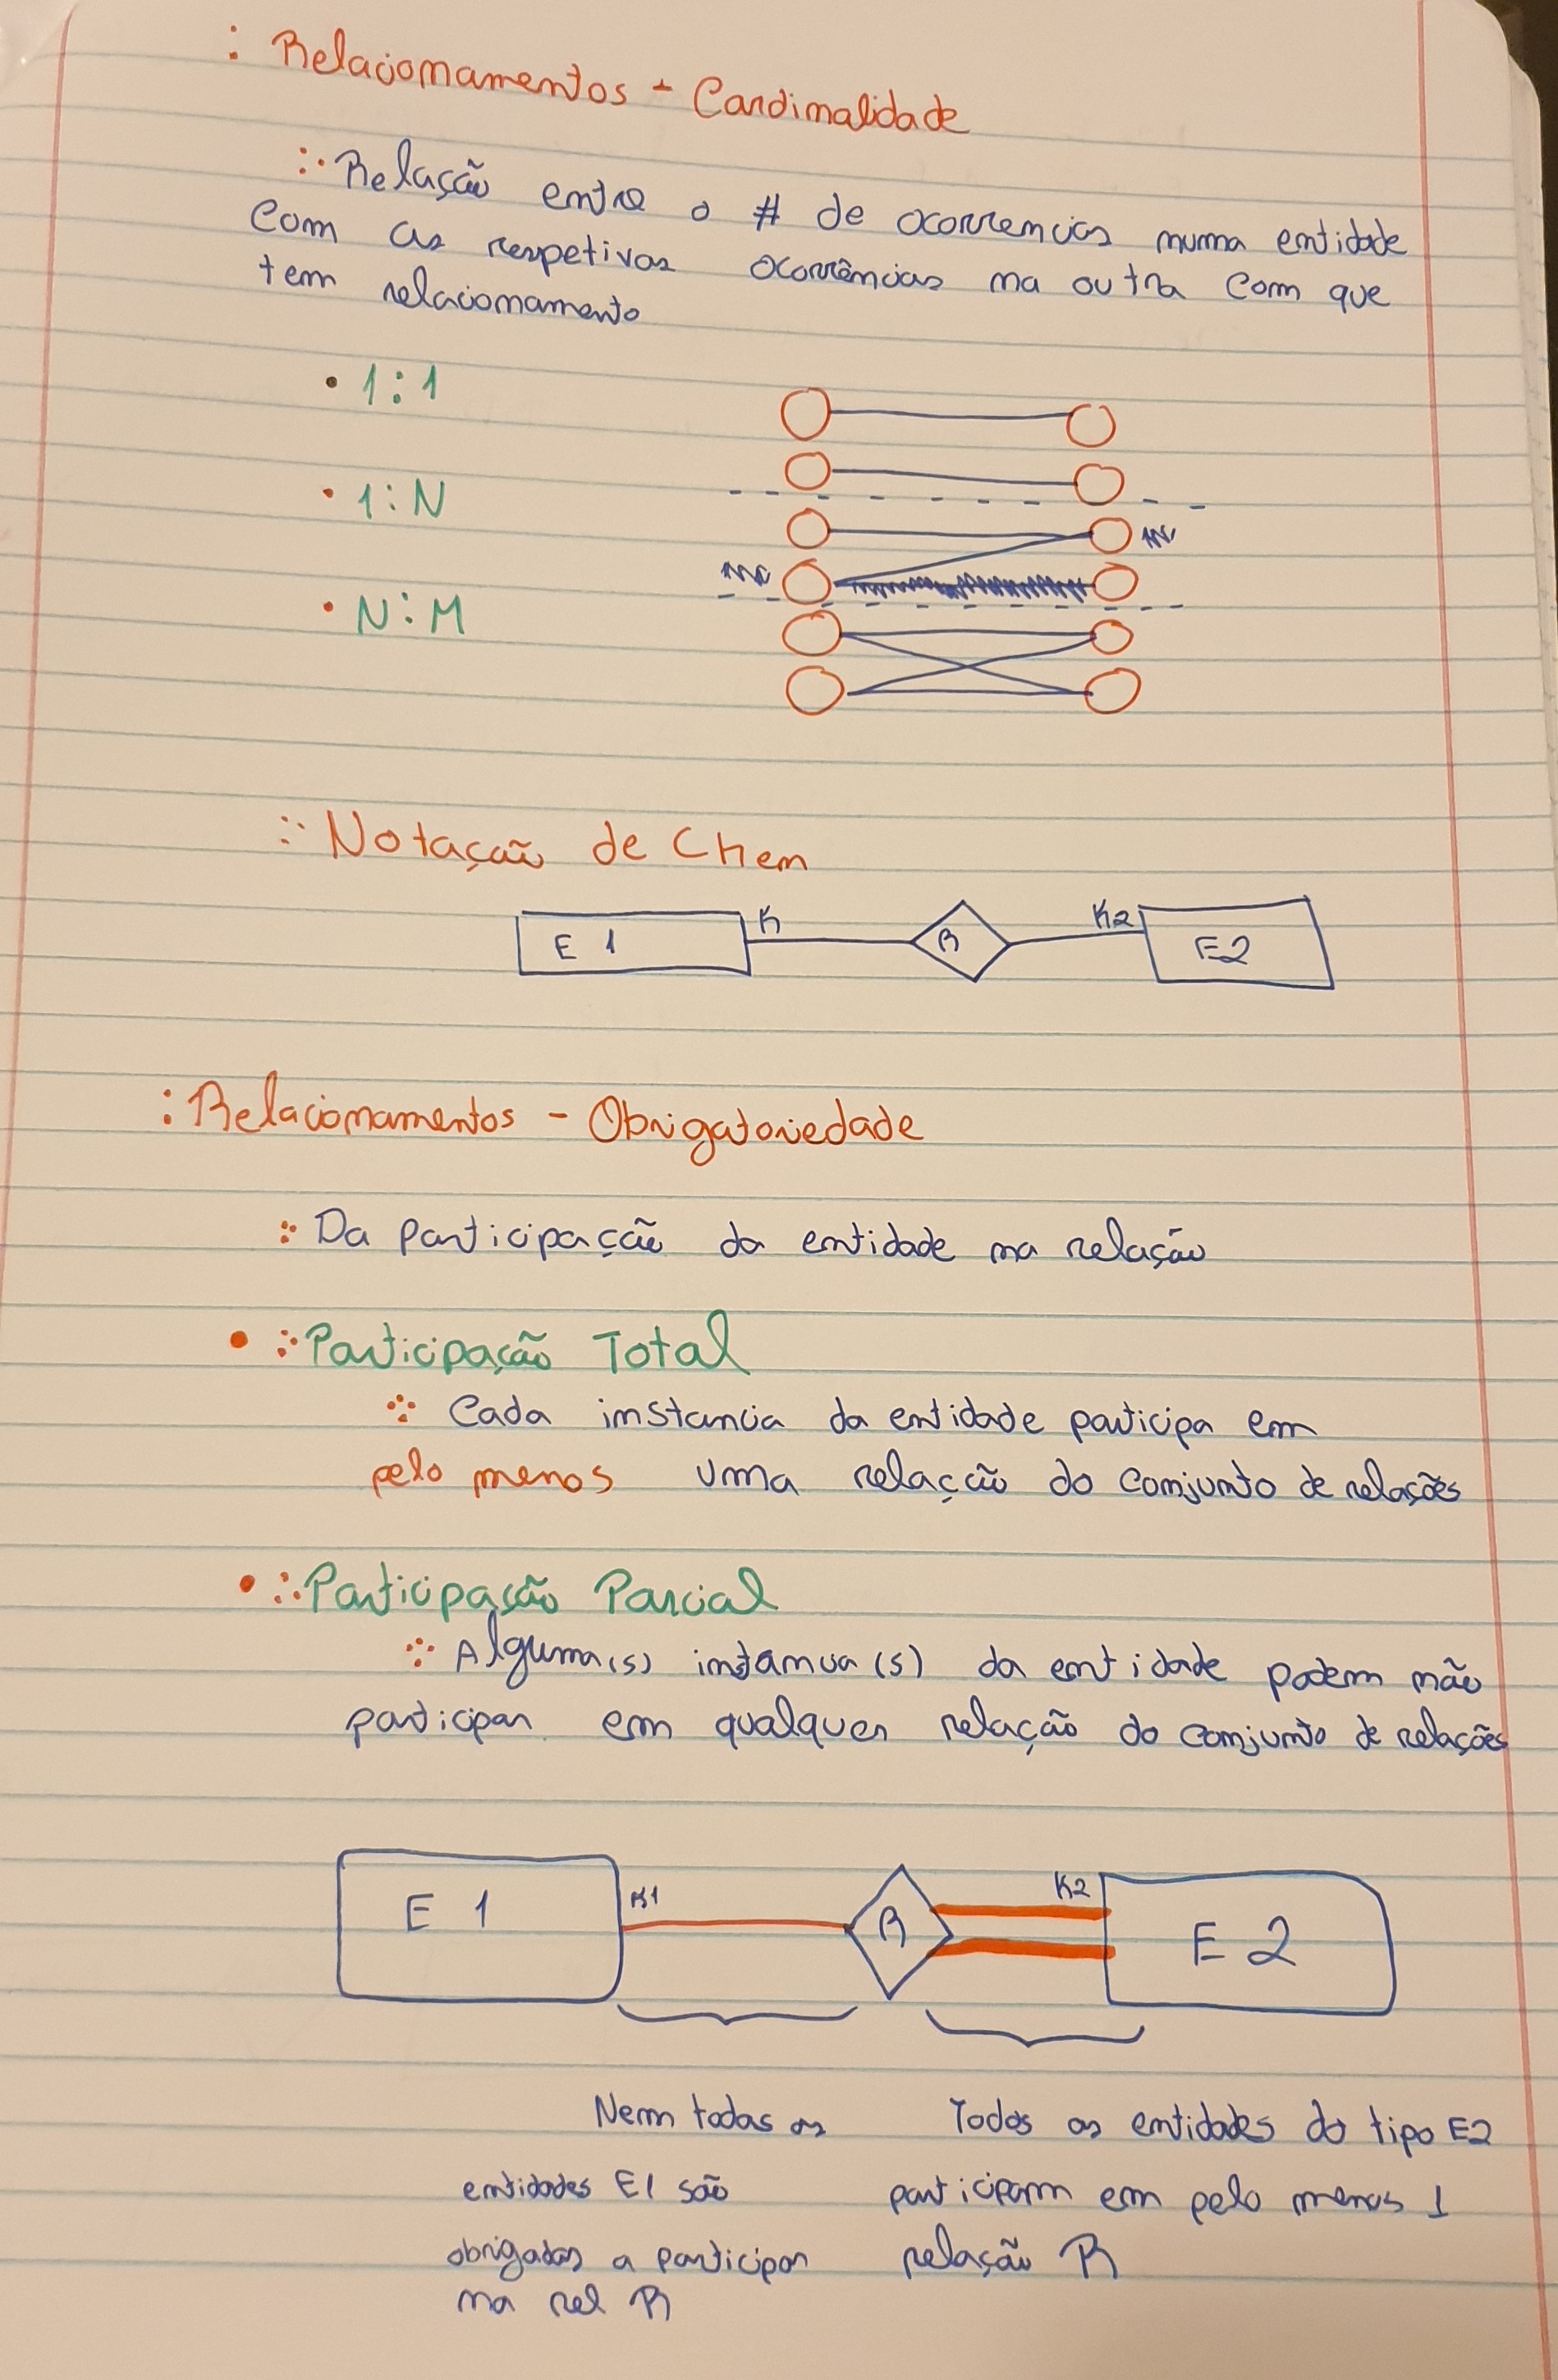 : Relacionamentos - Cardinalidade
Relação entre o # de ocorrencias numa entidade
com as respetivas ocorrências na outra com que
tem relacionamento
• 1:1
• 1:N
• N:M
Notação de Chen
E 1 K R K2 E2
: Relacionamentos - Obrigatoriedade
Da participação da entidade na relação
• Participação Total
Cada instancia da entidade participa em
pelo menos uma relação do conjunto de relações
• Participação Parcial
Alguma(s) instancia(s) da entidade podem não
participar em qualquer relação do conjunto de relações
E 1 K1 R K2 E 2
Nem todas as
entidades E1 são
obrigadas a participar
na rel R
Todas as entidades do tipo E2
participam em pelo menos 1
relação R